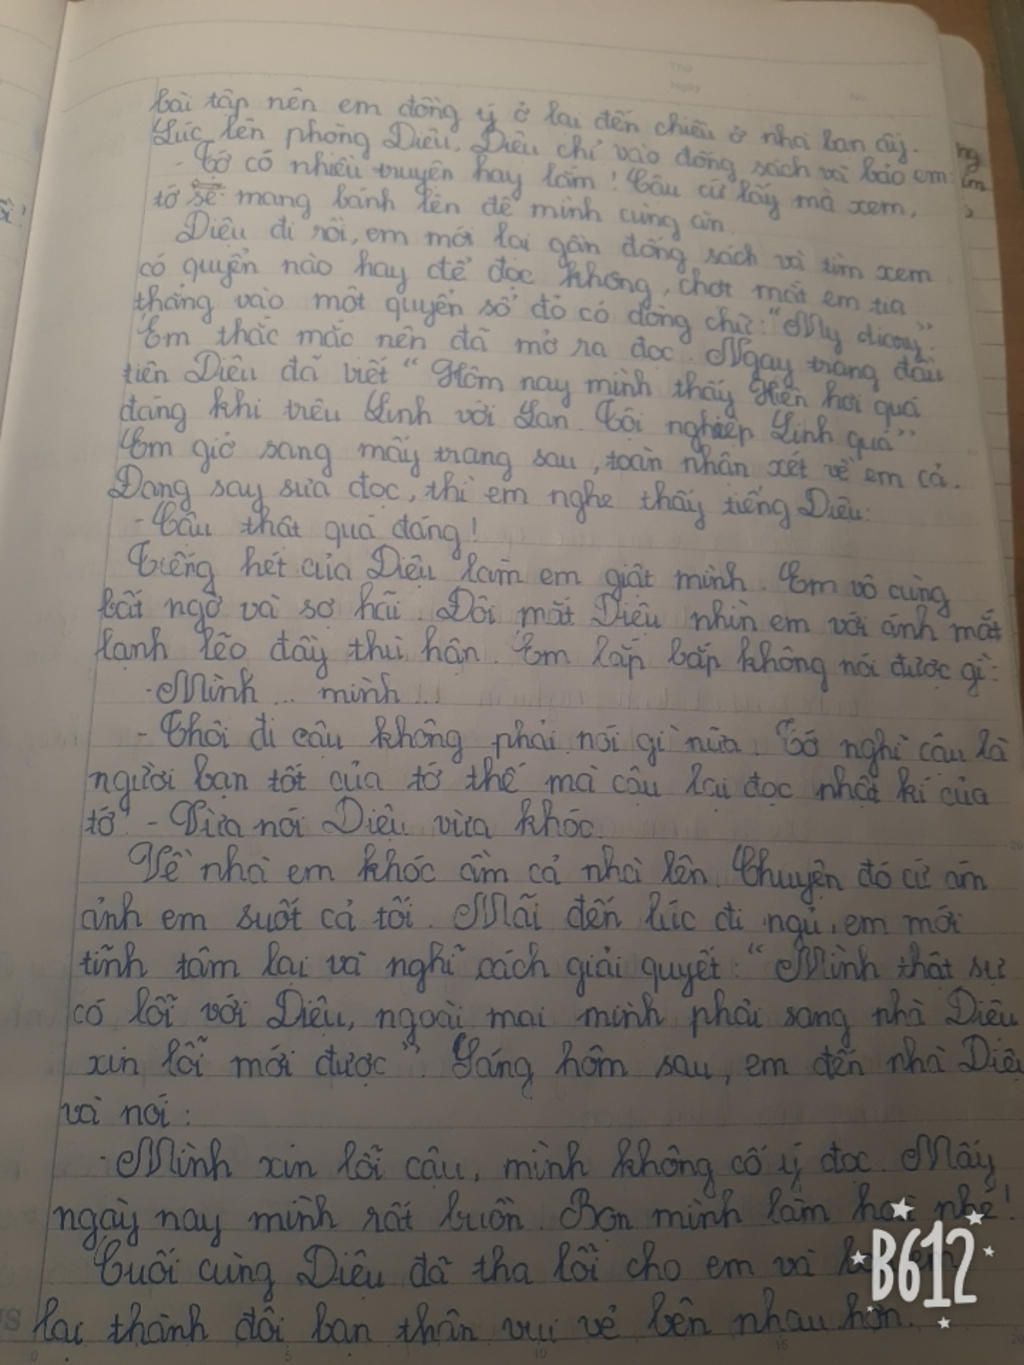 bài tập nên em đồng ý ở lại đến chiều ở nhà bạn ấy.
Lúc lên phòng Diệu, Diệu chỉ vào đống sách và bảo em:
- Tớ có nhiều truyện hay lắm! Cậu cứ lấy mà xem,
tớ sẽ mang bánh lên để mình cùng ăn.
Diệu đi rồi, em mới lại gần đống sách và tìm xem
có quyển nào hay để đọc không, chợt mắt em tia
thẳng vào một quyển sổ đỏ có dòng chữ: "My diary".
Em thắc mắc nên đã mở ra đọc. Ngay trang đầu
tiên Diệu đã viết "Hôm nay mình thấy Hiền hơi quá
đáng khi trêu Linh với Lan. Tội nghiệp Linh quá"
Em giở sang mấy trang sau, toàn nhận xét về em cả.
Đang say sưa đọc, thì em nghe thấy tiếng Diệu:
- Cậu thật quá đáng!
Tiếng hét của Diệu làm em giật mình. Em vô cùng
bất ngờ và sợ hãi. Đôi mắt Diệu nhìn em với ánh mắt
lạnh lẽo đầy thù hận. Em lắp bắp không nói được gì:
- Mình... mình...
- Thôi đi cậu không phải nói gì nữa. Tớ nghĩ cậu là
người bạn tốt của tớ thế mà cậu lại đọc nhật kí của
tớ - Vừa nói Diệu vừa khóc.
Về nhà em khóc ầm cả nhà lên. Chuyện đó cứ ám
ảnh em suốt cả tối. Mãi đến lúc đi ngủ, em mới
tĩnh tâm lại và nghĩ cách giải quyết: "Mình thật sự
có lỗi với Diệu, ngoài mai mình phải sang nhà Diệu
xin lỗi mới được". Sáng hôm sau, em đến nhà Diệu
và nói:
- Mình xin lỗi cậu, mình không cố ý đọc. Mấy
ngày nay mình rất buồn. Bọn mình làm hoà nhé!
Cuối cùng Diệu đã tha lỗi cho em và em
lại thành đôi bạn thân vui vẻ bên nhau hơn.
B612